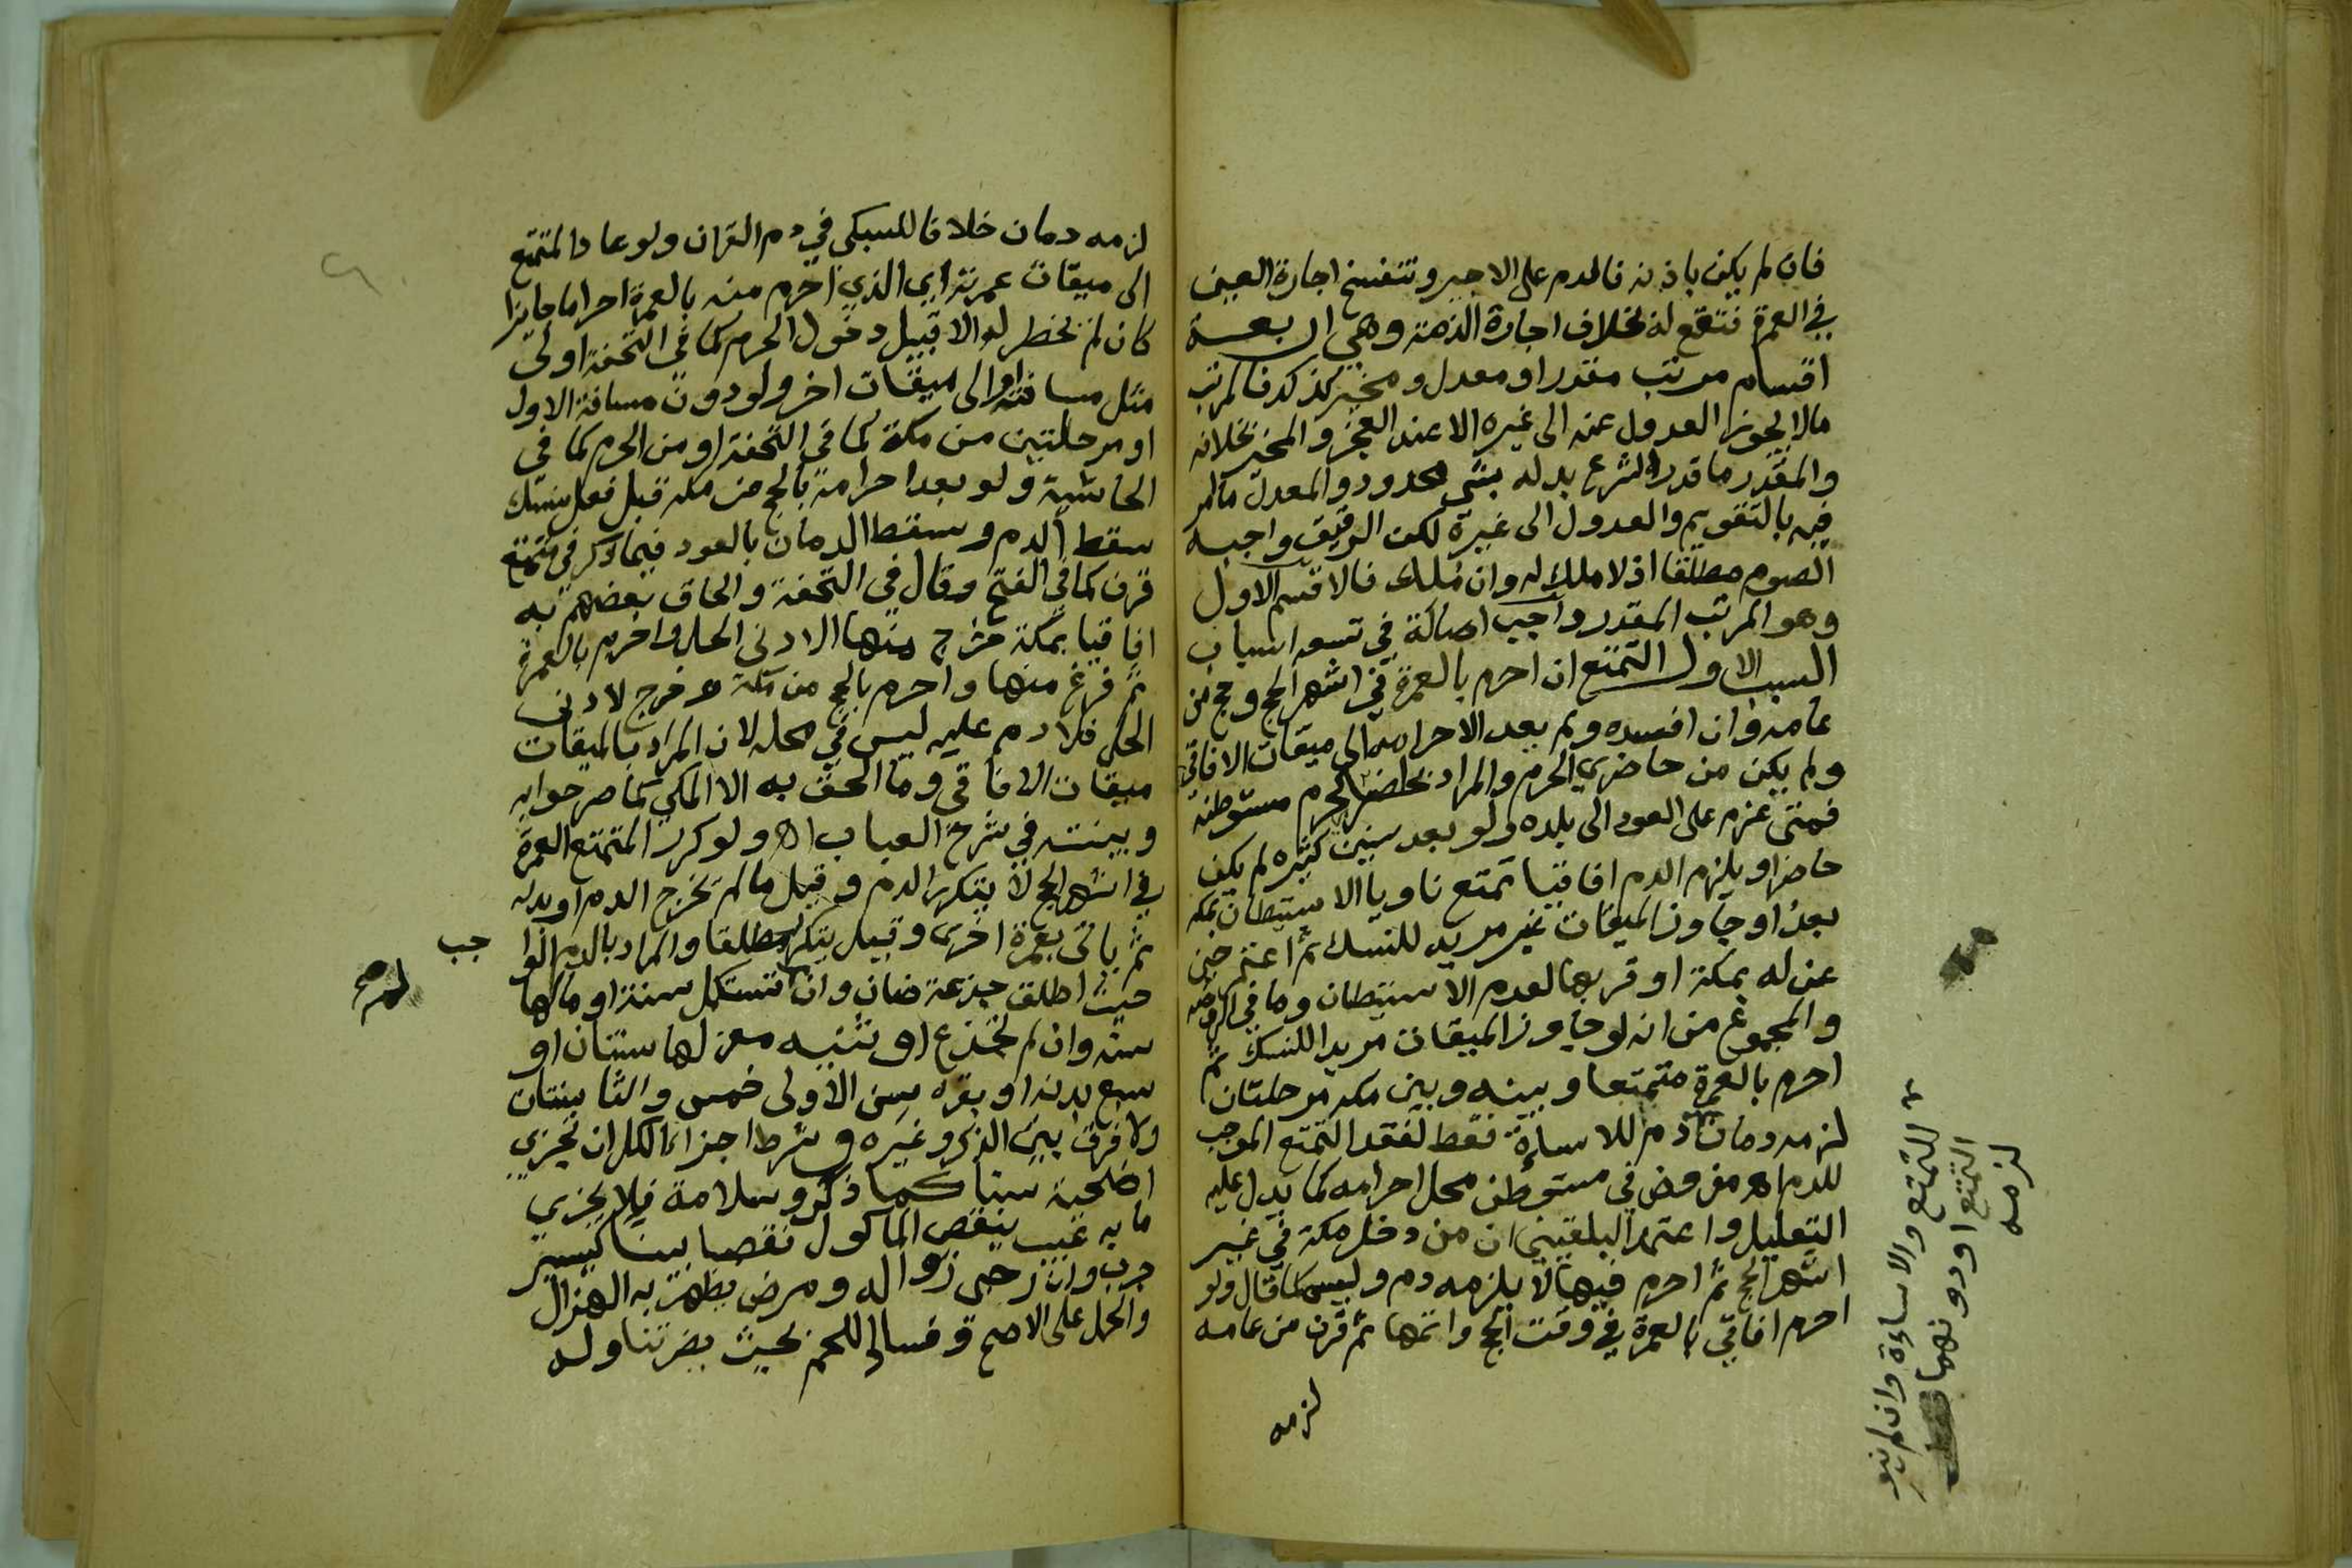 فان لم يكن باذنه فالدم على الاجير وتنفسخ اجارة العين
في العمرة فتقع له بخلاف اجارة الذمة وهي اربعة
اقسام مرتب مقدر او معدل ومخير كذلك فالمرتب
مالا يجوز العدول عنه الى غيره الا عند العجز والمخير بخلافه
والمقدر ما قدر الشرع بدله بشي محدود والمعدل ما امر
فيه بالتقويم والعدول الى غيره لكن الرقيق واجبه
الصوم مطلقا اذ لا ملك له وان ملك فالاقسم الاول
وهو المرتب المقدر واجب اصالة في تسعه اسباب
السبب الاول التمتع ان احرم بالعمرة في اشهر الحج وحج من
عامه وان افسده ولم يعد للاحرام الى ميقات الافاقي
ولم يكن من حاضري الحرم والمراد بحاضر الحرم مستوطنه
فمتى عزم على العود الى بلده ولو بعد سنين كثيره لم يكن
حاضرا ويلزم الدم افاقيا تمتع ناويا الاستيطان بمكه
بعد او جاوز الميقات غير مريد للنسك ثم اعتمر حين
عن له بمكة او قربها لعدم الاستيطان وما في الروضه
والمجموع من انه لو جاوز الميقات مريدا للنسك ثم
احرم بالعمرة متمتعا وبينه وبين مكه مرحلتان
لزمه دمان دم للاساءة فقط لفقد التمتع الموجب
للدم اه مفروض في مستوطن محل احرامه كما يدل عليه
التعليل واعتمد البلقيني ان من دخل مكة في غير
اشهر الحج ثم احرم فيها لا يلزمه دم وليس كما قال ولو
احرم افاقي بالعمرة في وقت الحج واتمها ثم قرن من عامه
لزمه
للتمتع والاساءة وان لم
التمتع او دونهما
لزمه
لزمه دمان خلافا للسبكي في دم القران ولو عاد المتمتع
الى ميقات عمرته اي الذي احرم منه بالعمرة احراما جايزا
كان لم يخطر له الا قبيل دخول الحرم كما في التحفة اولى
مثل مسافته او الى ميقات اخر ولو دون مسافة الاول
او مرحلتين من مكة كما في التحفة او من الحرم كما في
الحاشية ولو بعد احرامه بالحج من مكه قبل فعل نسك
سقط الدم وسقط الدمان بالعود فيما ذكر في متمتع
قرن كما في الفتح وقال في التحفة والحاق بعضهم به
افاقيا بمكة خرج منها الادنى الحل واحرم بالعمرة
ثم فرغ منها واحرم بالحج من مكة وخرج لادنى
الحل فلا دم عليه ليس في محله لان المراد بالميقات
ميقات الافاقي وما الحق به الا المكي كما صرحوا به
وبينته في شرح العباب اه ولو كرر المتمتع العمرة
في اشهر الحج لا يتكرر الدم وقيل ما لم يخرج الدم او بدله
ثم ياتى بعمرة اخرى وقيل يتكرر مطلقا والمراد بالدم الوا
جب
حيث اطلق جذعة ضان وان لم تستكمل سنة او مالها
سنه وان لم تجذع او ثنيه معز لها سنتان او
سبع بدنه او بقره سن الاولى خمس والثا سنتان
ولا فرق بين الذكر وغيره وشرط اجزا الكل ان تجزي
اضحية سنا كما ذكر وسلامة فلا يجزي
ما به عيب ينقص الماكول نقصا بينا كيسير
جرب وان رجى زواله ومرض يظهر به الهزال
والحمل على الاصح وفساد اللحم بحيث يضر تناوله